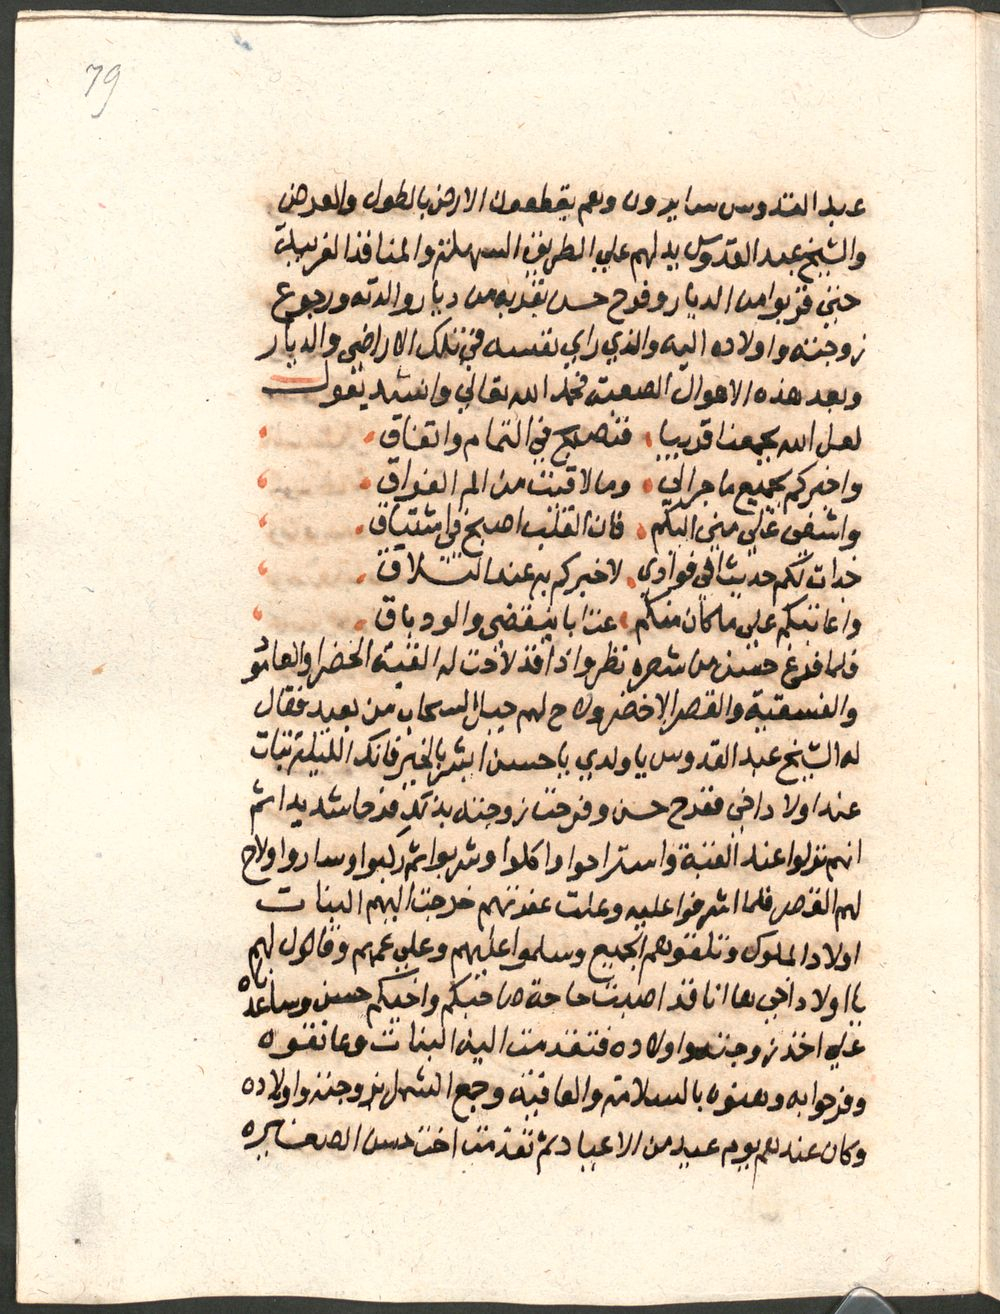 79
عبد القدوس سايرون وهم يقطعون الارض بالطول والعرض
والشيخ عبد القدوس يدلهم علي الطريق السهلة والمنافذ القريبة
حتي قربوا من الديار وفرح حسن بقربه من ديار والدته ورجوع
زوجته واولاده اليه والذي راي نفسه في تلك الاراضي والديار
وبعد هذه الاهوال الصعبة فحمد الله تعالي وانشد يقول
لعل الله يجمعنا قريبا فنصبح في التمام واتفاق
واخبركم بجميع ما جرالي وما لاقيت من الم الفراق
واشفي علي مني اليكم فان القلب اصبح في اشتياق
خبات لكم حديثا في فوادي لاخبركم به عند التلاق
واعاتبكم علي ما كان منكم عتابا ينقضي والود باق
فلما فرغ حسن من شعره نظر واذا قد لاحت له القبة الخضرا والعامود
والفسقية والقصر الاخضر ولاح لهم جبل السحاب من بعيد فقال
له الشيخ عبد القدوس يا ولدي يا حسن ابشر بالخير فانك الليلة تبات
عند اولاد اخي ففرح حسن وفرحت زوجته بذلك فرحا شديدا ثم
انهم نزلوا عند القبة واستراحوا واكلوا وشربوا ثم ركبوا وساروا ولاح
لهم القصر فلما اشرفوا عليه وعلت عفرتهم خرجت اليهم البنات
اولاد الملوك وتلقوهم الجميع وسلموا عليهم وعلي عمهم وقال لهم
يا اولاد اخي ها انا قد اصبت حاجة صاحبكم واخيكم حسن وساعدناه
علي اخذ زوجته واولاده فتقدمت اليه البنات وعانقوه
وفرحوا به وهنوه بالسلامة والعافية وجمع الشمل بزوجته واولاده
وكان عندهم يوم عيد من الاعياد ثم تقدمت اخت حسن الصغيره